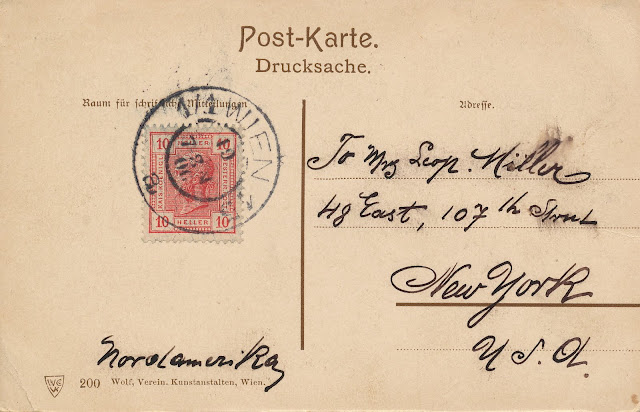 Post-Karte.
Drucksache.
Raum für schriftliche Mitteilungen
Adresse.
1/1 WIEN
10 HELLER 10
10 HELLER 10
To Mrs Leop. Miller
48 East, 107th Street
New York
U.S.A.
Nordamerika
200 Wolf, Verein. Kunstanstalten, Wien.